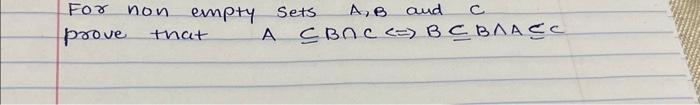 For non empty sets A, B and C
prove that A ⊆ B∩C <=> B ⊆ B∧A ⊆ C